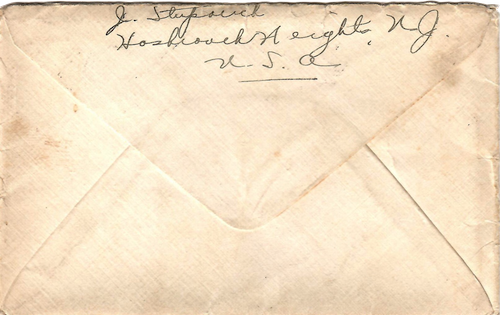 J. Stupovich
Hosbrouck Heights, N.J.
U. S. A